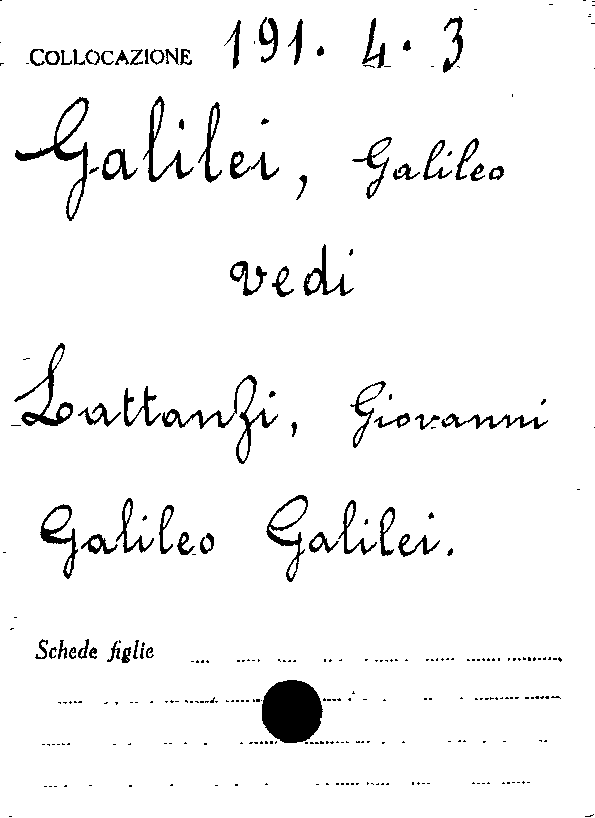 COLLOCAZIONE 191. 4. 3
Galilei, Galileo
vedi
Lattanzi, Giovanni
Galileo Galilei.
Schede figlie